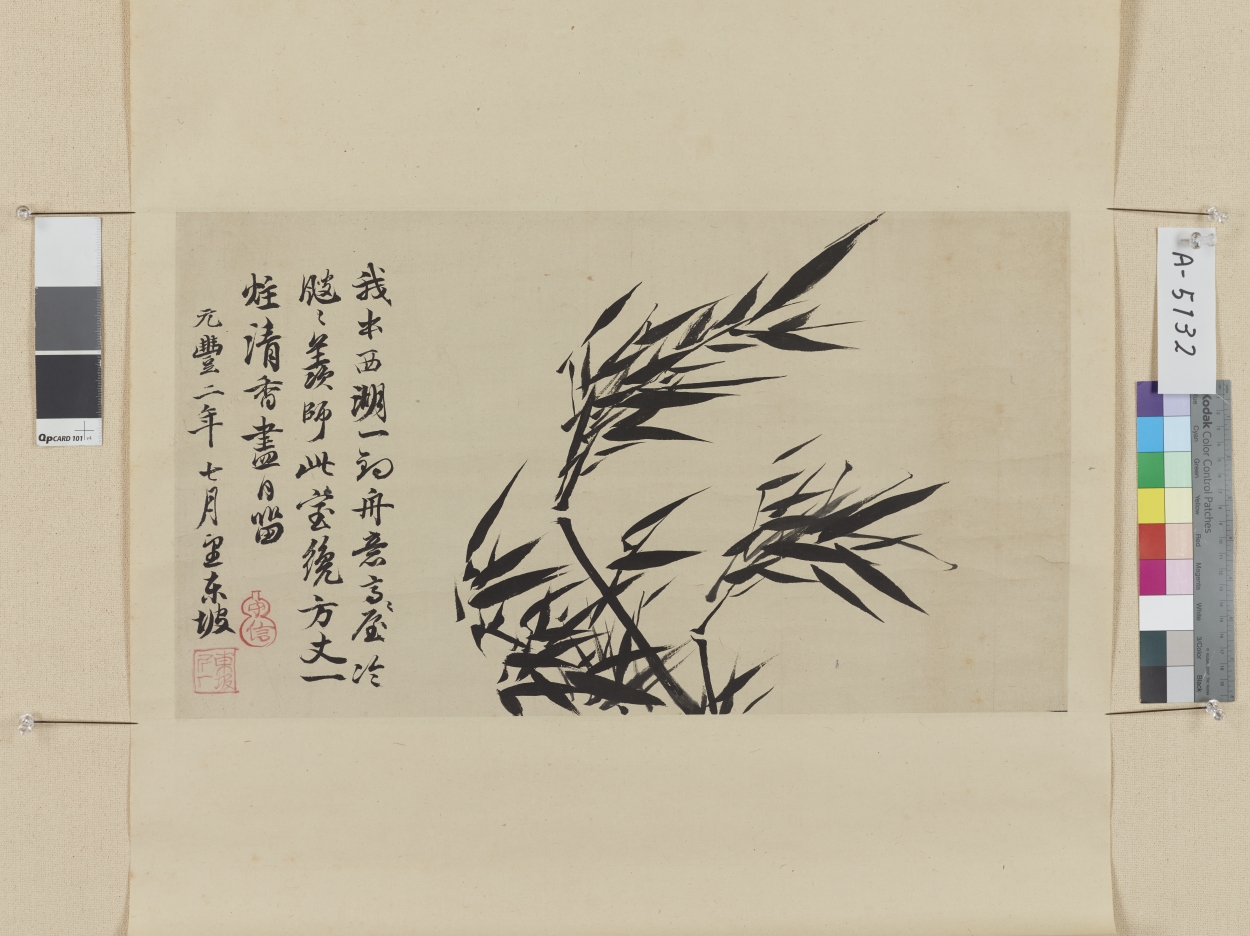 我本西湖一釣舟意高屋冷
颼〻羨師此室纔方丈一
炷清香盡日留
元豐二年七月望東坡
東坡
A-5132
QpCARD 101 v4
Kodak Color Control Patches
Blue
Cyan
Green
Yellow
Red
Magenta
White
3/Color
Black